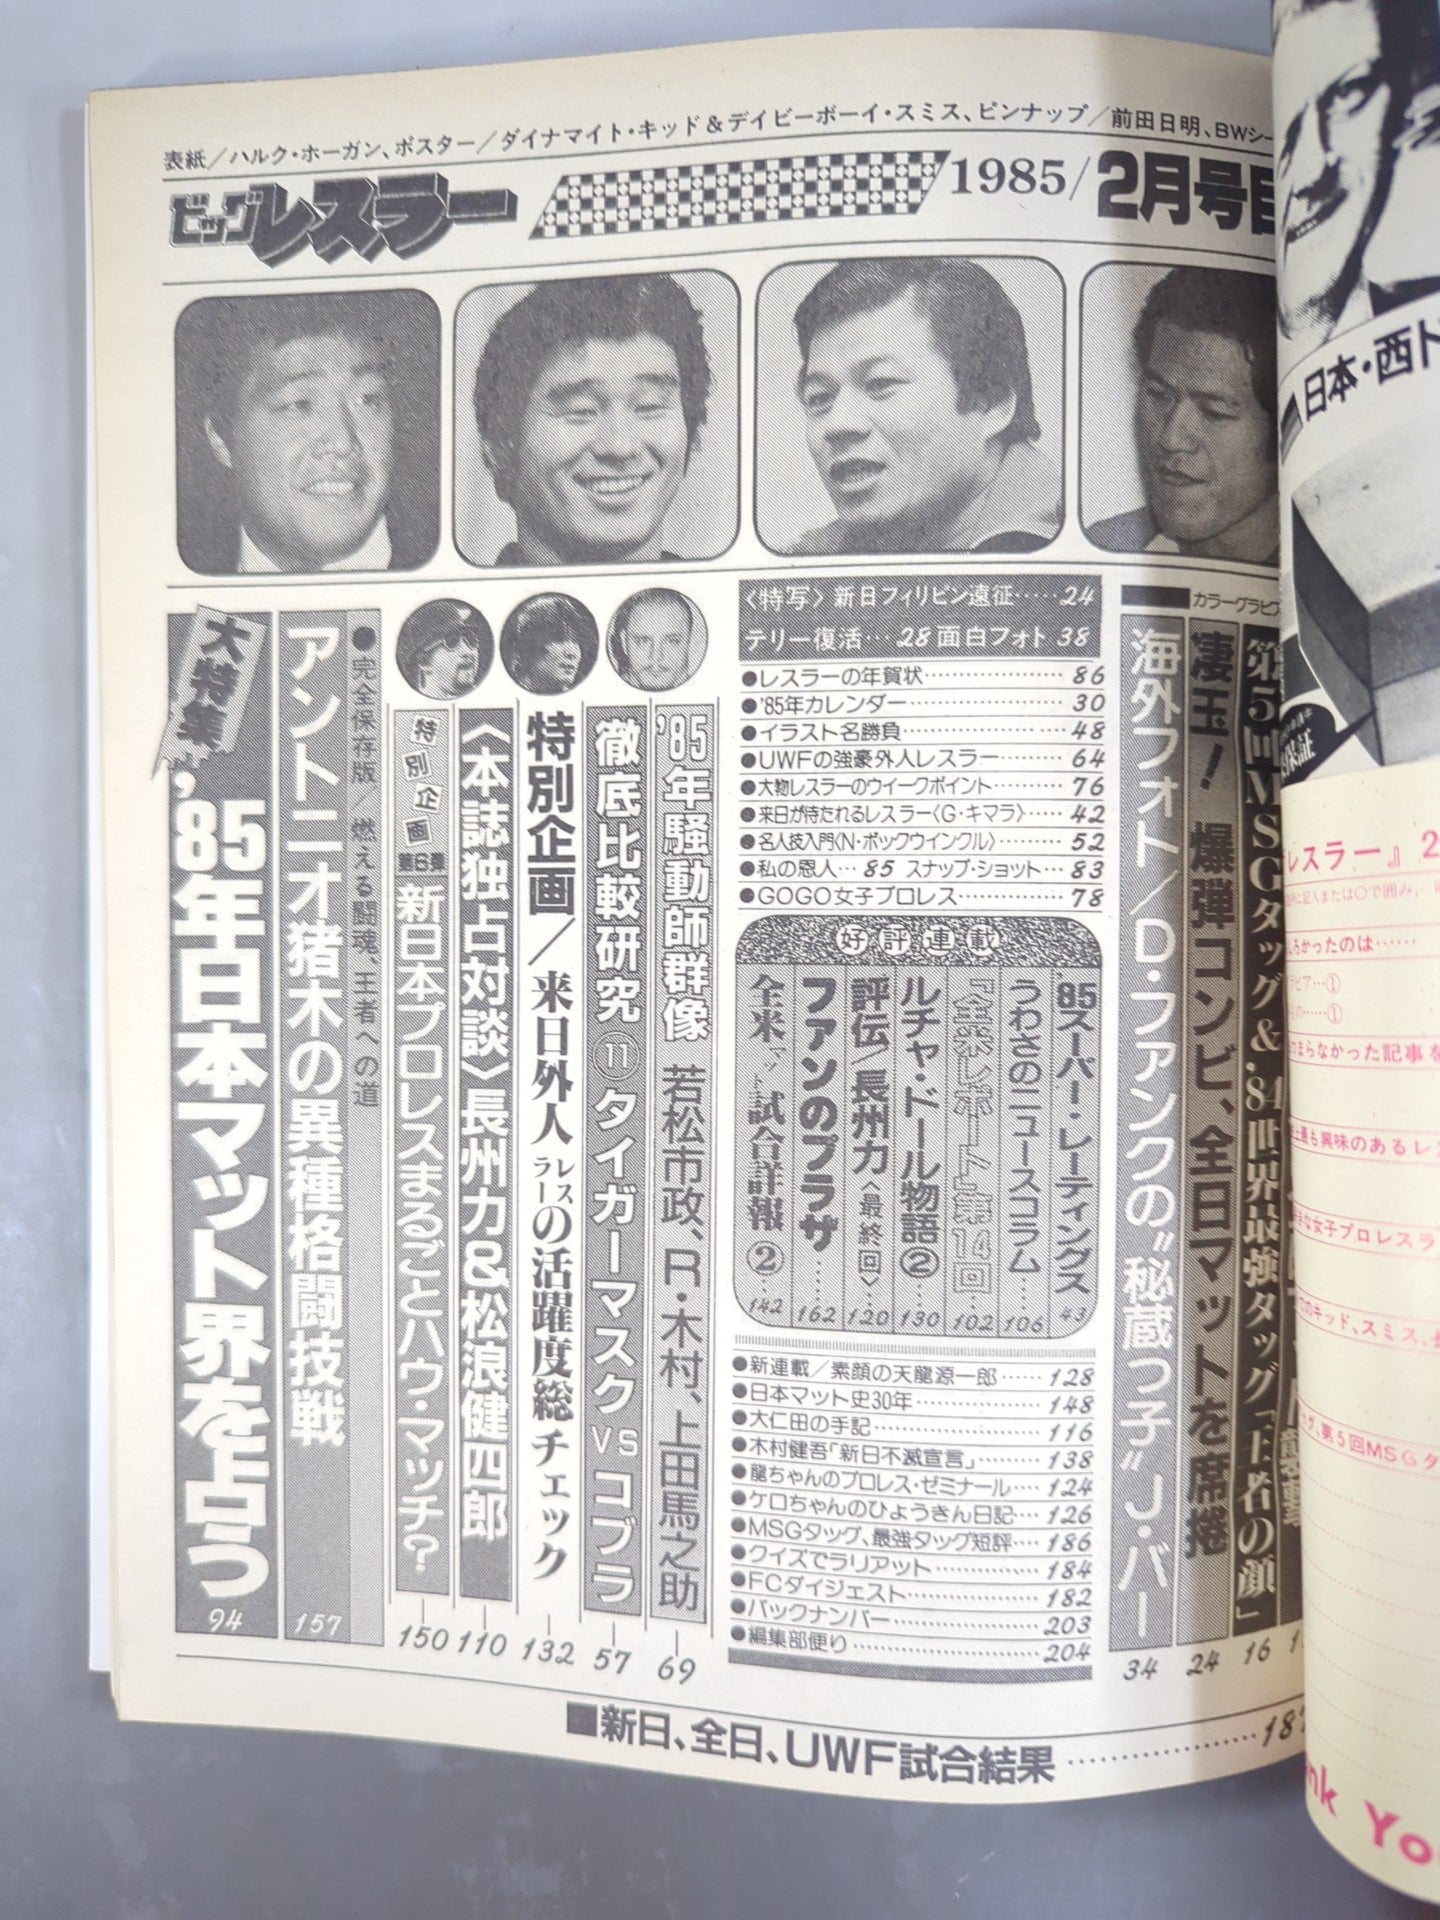 表紙／ハルク・ホーガン、ポスター／ダイナマイト・キッド＆デイビーボーイ・スミス、ピンナップ／前田日明、BWシー
ビッグレスラー
1985/2月号目
カラーグラビ
第5回MSGタッグ＆'84世界最強タッグ「王者の顔」
16
凄玉！爆弾コンビ、全日マットを席捲
24
海外フォト／D・ファンクの〝秘蔵っ子〟J・バー
34
〈特写〉新日フィリピン遠征……24
テリー復活…28 面白フォト 38
●レスラーの年賀状……86
●'85年カレンダー……30
●イラスト名勝負……48
●UWFの強豪外人レスラー……64
●大物レスラーのウイークポイント……76
●来日が待たれるレスラー〈G・キマラ〉……42
●名人技入門〈N・ボックウインクル〉……52
●私の恩人…85 スナップ・ショット…83
●GOGO女子プロレス……78
好評連載
'85スーパー・レーティングス 43
うわさのニュースコラム……106
『全米レポート』第14回……102
ルチャ・ドール物語②……130
評伝／長州力〈最終回〉……120
ファンのプラザ……162
全米マット試合詳報②……142
●新連載／素顔の天龍源一郎……128
●日本マット史30年……148
●大仁田の手記……116
●木村健吾「新日不滅宣言」……138
●龍ちゃんのプロレス・ゼミナール……124
●ケロちゃんのひょうきん日記……126
●MSGタッグ、最強タッグ短評……186
●クイズでラリアット……184
●FCダイジェスト……182
●バックナンバー……203
●編集部便り……204
'85年騒動師群像 若松市政、R・木村、上田馬之助
69
徹底比較研究⑪タイガーマスクVSコブラ
57
特別企画／来日外人レスラーの活躍度総チェック
132
〈本誌独占対談〉長州力＆松浪健四郎
110
特別企画 第6弾 新日本プロレスまるごとハウ・マッチ？
150
●完全保存版／燃える闘魂、王者への道
アントニオ猪木の異種格闘技戦
157
大特集
'85年日本マット界を占う
94
■新日、全日、UWF試合結果……18
日本・西ド
保証
レスラー』2
に記入または○で囲み、
ろかったのは……
ラビア…①
……①
まらなかった記事を
最も興味のあるレ
な女子プロレスラ
のキッド、スミス、
グ、第5回MSGタ
nk You